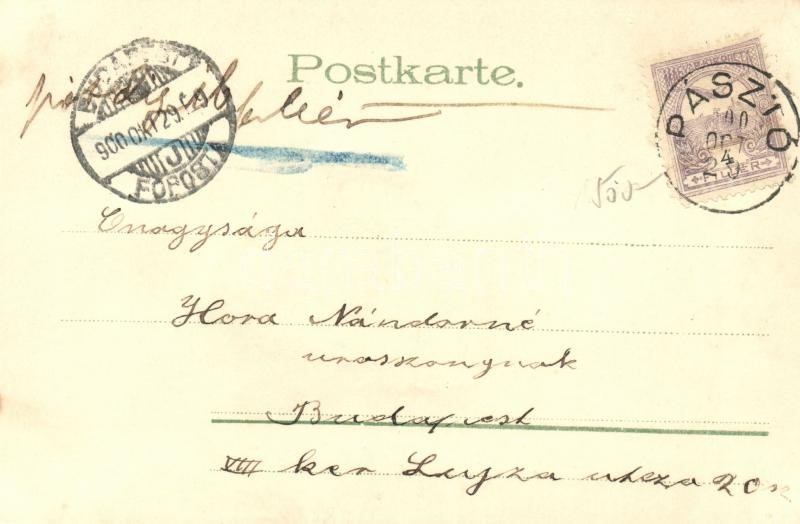 Postkarte.
BUDAPEST
900 OKT 29
FŐPOSTA
PÁSZTÓ
900
OKT
24
FILLÉR
Önagysága
Hora Nándorné
uraszonynak
Budapest
VIII ker Lujza utcza 20